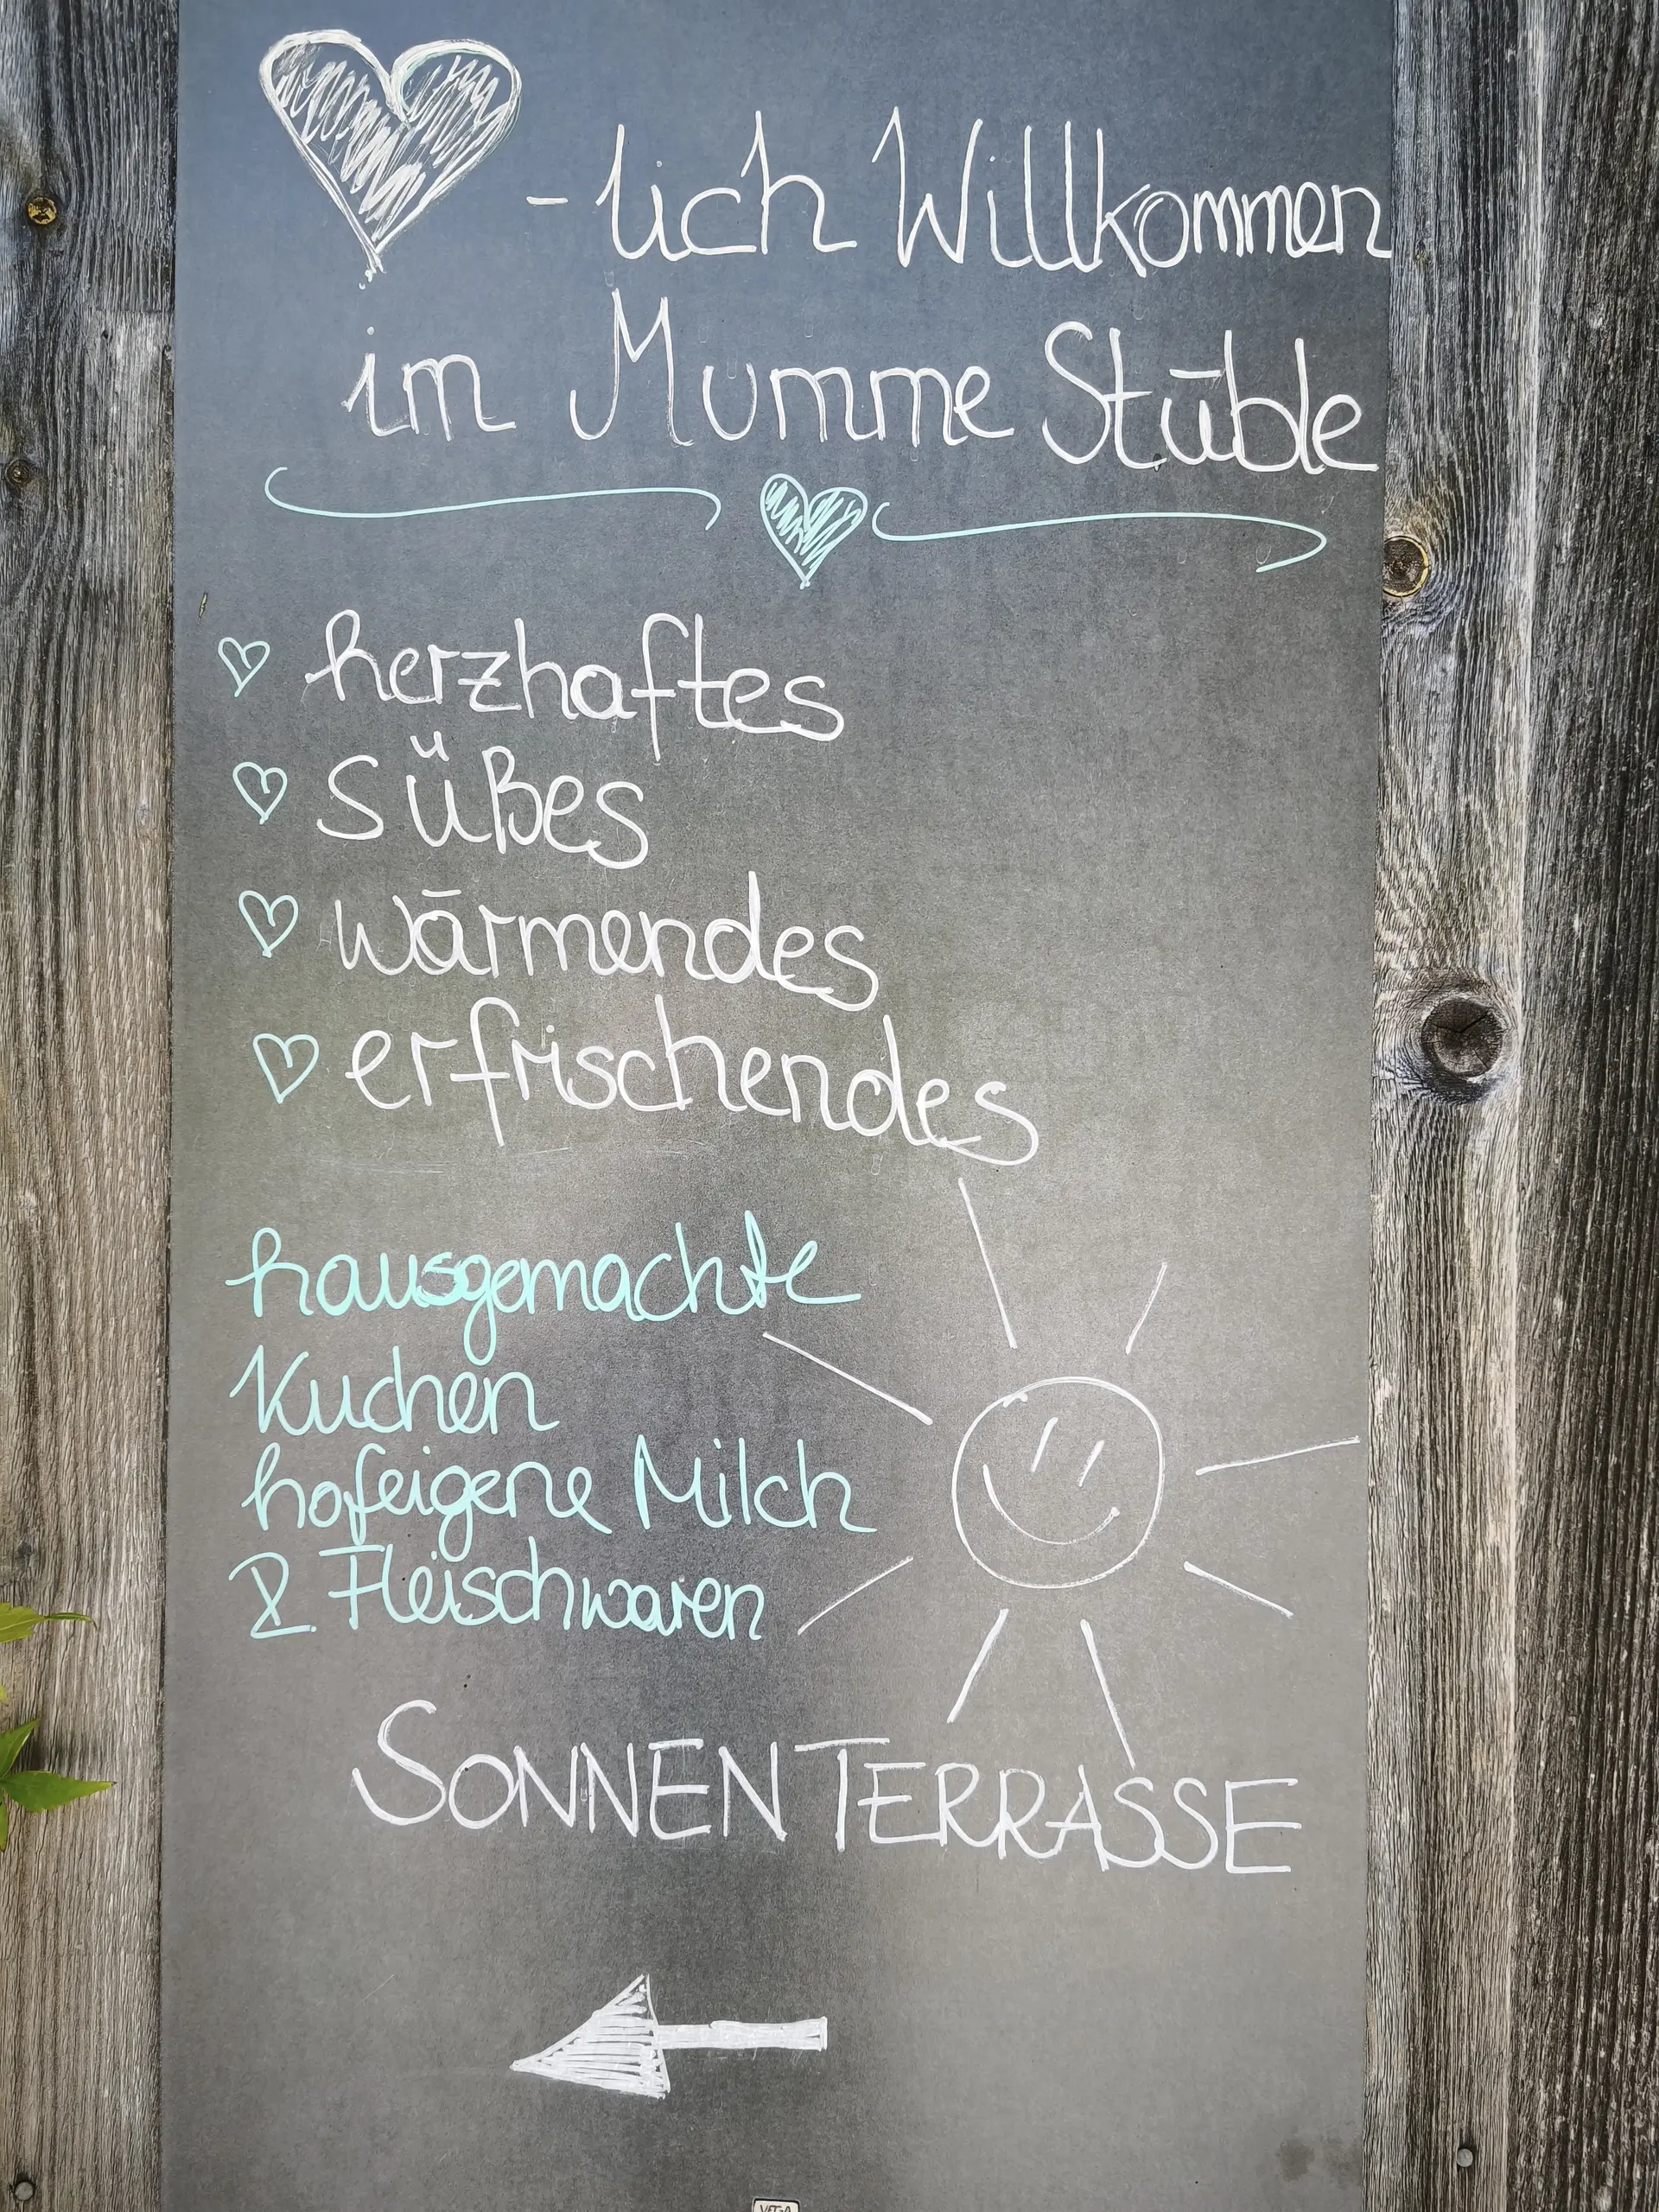 -lich Willkommen
im Mumme Stüble
herzhaftes
süßes
wärmendes
erfrischendes
hausgemachte
Kuchen
hofeigene Milch
& Fleischwaren
SONNENTERRASSE
VEGA